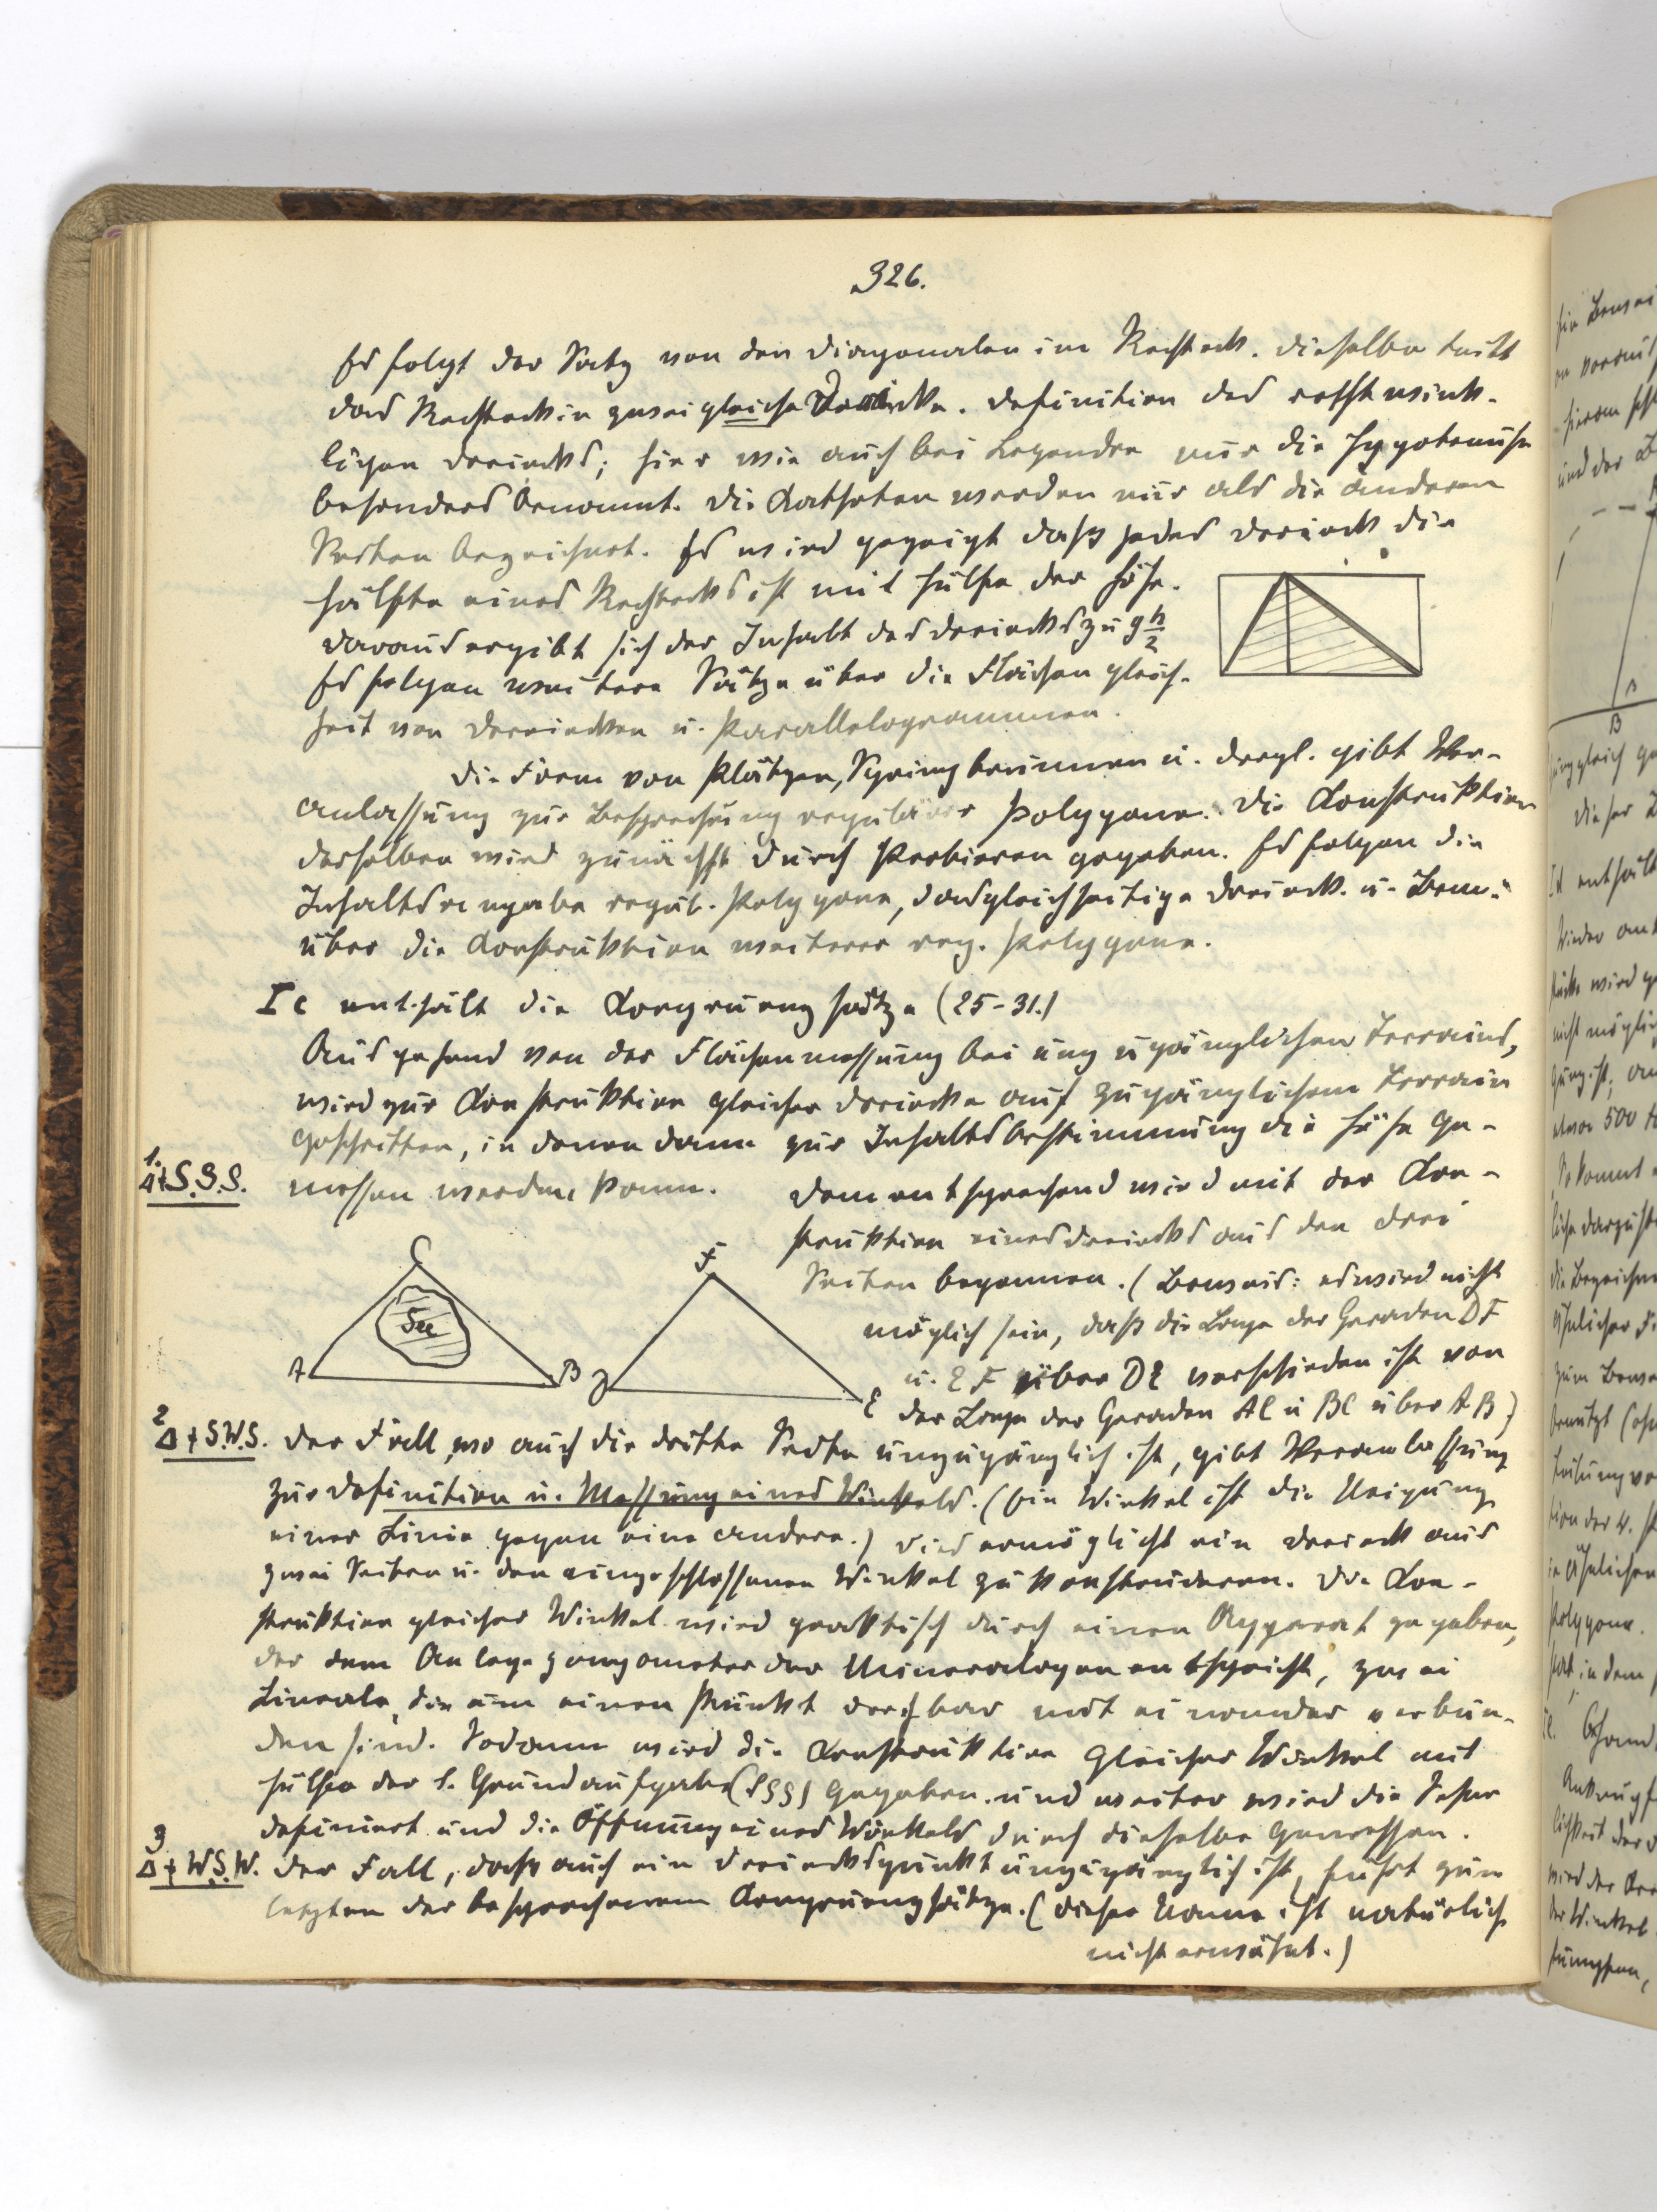 326.
Es folgt der Satz von den Diagonalen im Rechteck. Dieselbe teilt
das Rechteck in zwei gleiche Dreiecke. Definition des rechtwink-
ligen Dreiecks; hier wie auch bei Legendre nur die Hypotenuse
besonders benannt. Die Katheten werden nur als die anderen
Seiten bezeichnet. Es wird gezeigt daß jedes Dreieck die
Hälfte eines Rechtecks ist mit Hülfe der Höhe.
Daraus ergibt sich der Inhalt des Dreiecks zu g h/2
Es folgen weitere Sätze über die Flächengleich-
heit von Dreiecken u. Parallelogrammen.
Die Form von Plätzen, Springbrunnen u. dergl. gibt Ver-
anlassung zur Besprechung regulärer Polygone. Die Konstruktion
derselben wird zunächst durch Probieren gegeben. Es folgen die
Inhaltsangabe regul. Polygone, das gleichseitige Dreieck u. Bem.
über die Konstruktion weiterer reg. Polygone.
Ic enthält die Kongruenzsätze (25-31.)
Ausgehend von der Flächenmessung bei unzugänglichen Terrains,
wird zur Konstruktion gleicher Dreiecke auf zugänglichem Terrain
geschritten, in denen dann zur Inhaltsbestimmung die Höhe ge-
1.
Δ + S.S.S.
messen werden kann. Dementsprechend wird mit der Kon-
struktion eines Dreiecks aus den drei
Seiten begonnen. (Beweis: es wird nicht
möglich sein, daß die Lage der Geraden DF
u. EF über DE verschieden ist von
der Lage der Geraden AC u BC über AB)
C
See
A
B
F
D
E
2
Δ + S.W.S.
Der Fall, wo auch die dritte Seite unzugänglich ist, gibt Veranlassung
zur Definition u. Messung eines Winkels. (Ein Winkel ist die Neigung
einer Linie gegen eine andere.) Dies ermöglicht ein Dreieck aus
zwei Seiten u. den eingeschlossenen Winkel zu konstruieren. Die Kon-
struktion gleicher Winkel wird praktisch durch einen Apparat gegeben,
der dem Anlegegoniometer der Mineralogen entspricht, zwei
Lineale, die um einen Punkt drehbar mit einander verbun-
den sind. Sodann wird die Konstruktion gleicher Winkel mit
Hülfe der 1. Grundaufgabe (SSS) gegeben und weiter wird die Sehne
definiert und die Öffnung eines Winkels durch dieselbe gemessen.
3
Δ + W.S.W.
Der Fall, daß auch ein Dreieckspunkt unzugänglich ist, führt zum
letzten der besprochenen Kongruenzsätze. (Dieser Name ist natürlich
nicht erwähnt.)